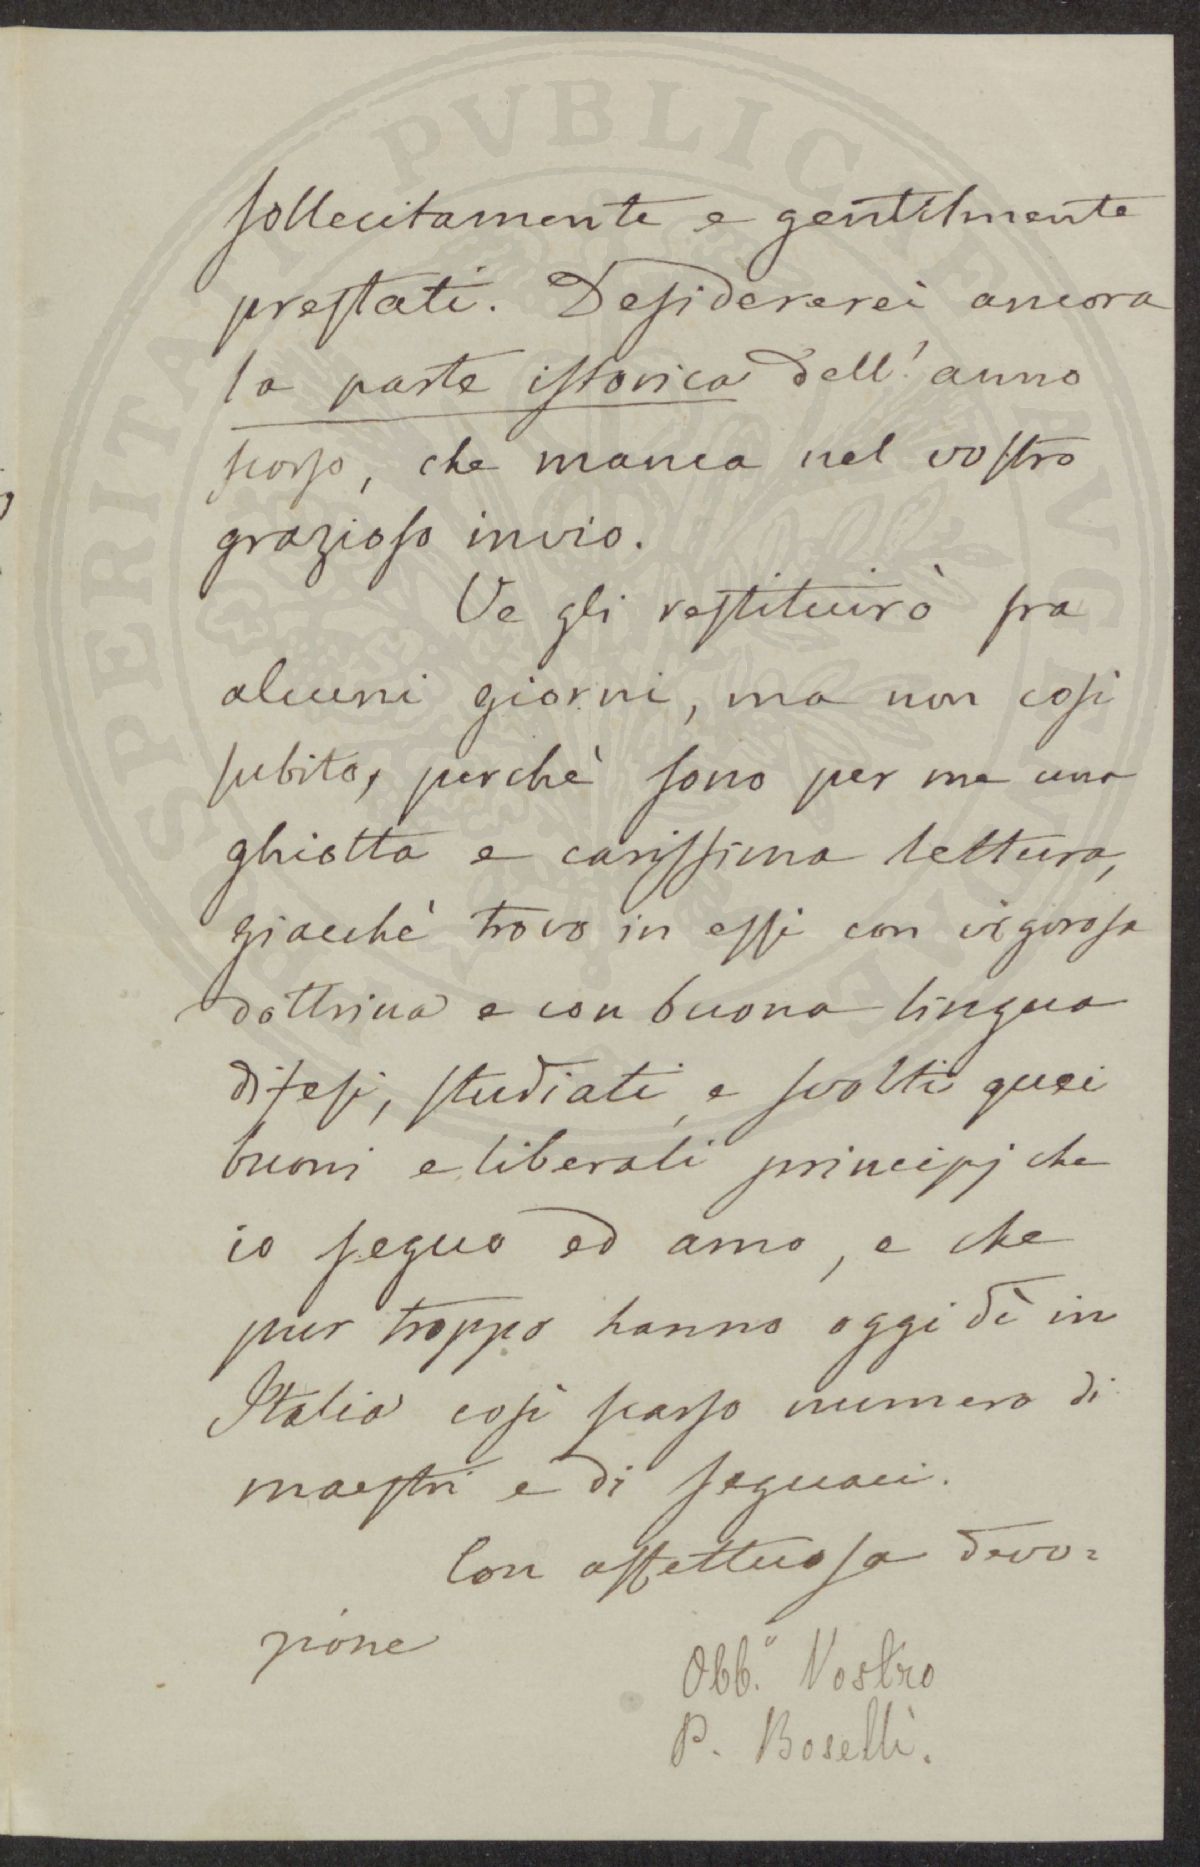 sollecitamente e gentilmente
prestati. Desidererei ancora
la parte istorica dell'anno
scorso, che manca nel vostro
grazioso invio.
Ve gli restituirò fra
alcuni giorni, ma non così
subito, perchè sono per me una
ghiotta e carissima lettura,
giacchè trovo in essi con vigorosa
dottrina e con buona lingua
difesi, studiati, e svolti quei
buoni e liberali principj che
io seguo ed amo, e che
pur troppo hanno oggi dì in
Italia così scarso numero di
maestri e di seguaci.
Con affettuosa devo=
zione
Obb.º Vostro
P. Boselli.